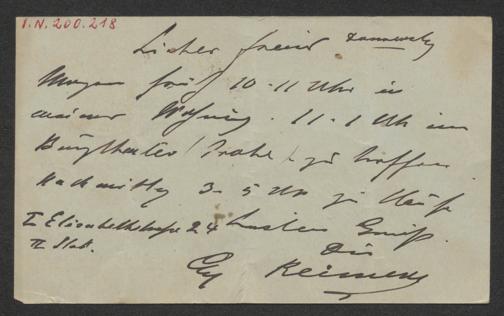 I.N. 200.218
Lieber Freund
Morgen früh 10-11 Uhr in
meiner Wohnung. 11-1 Uhr im
Burgtheater (Probe) zu treffen
Nachmittag 3-5 Uhr zu Hause
I Elisabethstrasse 24 besten Gruß.
II Stok. Dein
Reimers